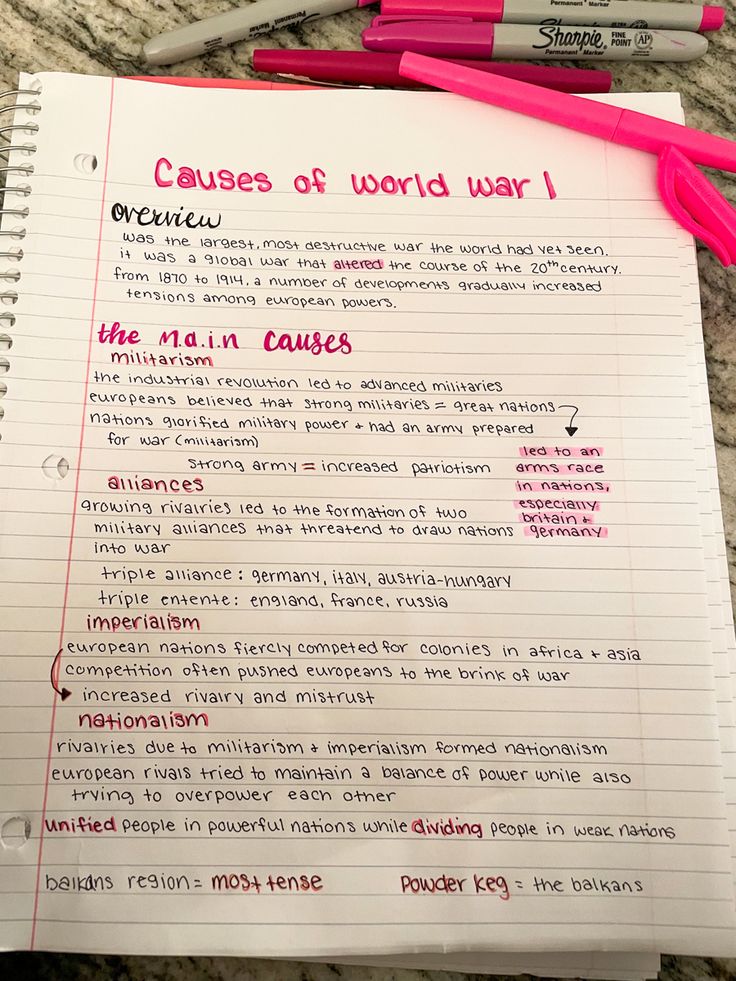 Permanent Marker
Permanent Marker
Sharpie FINE POINT AP
Permanent Marker
Causes of world war 1
overview
was the largest, most destructive war the world had yet seen.
it was a global war that altered the course of the 20th century.
from 1870 to 1914, a number of developments gradually increased
tensions among european powers.
the m.a.i.n causes
militarism
the industrial revolution led to advanced militaries
europeans believed that strong militaries = great nations
nations glorified military power + had an army prepared
for war (militarism)
strong army = increased patriotism
led to an
arms race
in nations,
especially
britain +
germany
alliances
growing rivalries led to the formation of two
military alliances that threatend to draw nations
into war
triple alliance: germany, italy, austria-hungary
triple entente: england, france, russia
imperialism
european nations fiercly competed for colonies in africa + asia
competition often pushed europeans to the brink of war
increased rivalry and mistrust
nationalism
rivalries due to militarism + imperialism formed nationalism
european rivals tried to maintain a balance of power while also
trying to overpower each other
unified people in powerful nations while dividing people in weak nations
balkans region = most tense
Powder keg = the balkans